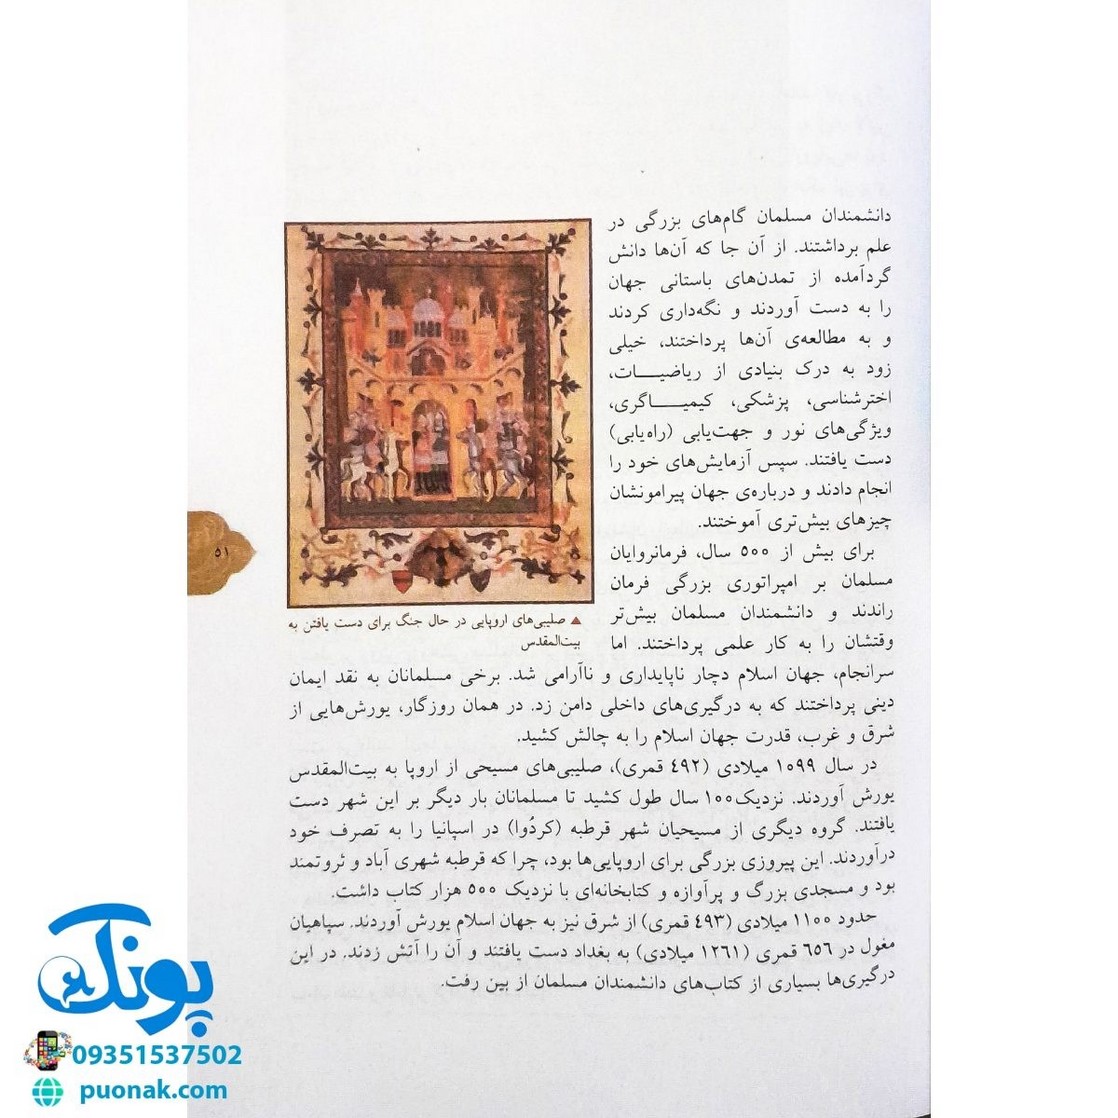 دانشمندان مسلمان گام‌های بزرگی در
علم برداشتند. از آن جا که آن‌ها دانش
گردآمده از تمدن‌های باستانی جهان
را به دست آوردند و نگه‌داری کردند
و به مطالعه‌ی آن‌ها پرداختند، خیلی
زود به درک بنیادی از ریاضیـــات،
اخترشناسی، پزشکی، کیمیـــاگری،
ویژگی‌های نور و جهت‌یابی (راه‌یابی)
دست یافتند. سپس آزمایش‌های خود را
انجام دادند و درباره‌ی جهان پیرامونشان
چیزهای بیش‌تری آموختند.
برای بیش از ۵۰۰ سال، فرمانروایان
مسلمان بر امپراتوری بزرگی فرمان
راندند و دانشمندان مسلمان بیش‌تر
وقتشان را به کار علمی پرداختند. اما
سرانجام، جهان اسلام دچار ناپایداری و ناآرامی شد. برخی مسلمانان به نقد ایمان
دینی پرداختند که به درگیری‌های داخلی دامن زد. در همان روزگار، یورش‌هایی از
شرق و غرب، قدرت جهان اسلام را به چالش کشید.
در سال ۱۰۹۹ میلادی (۴۹۲ قمری)، صلیبی‌های مسیحی از اروپا به بیت‌المقدس
یورش آوردند. نزدیک ۱۰۰ سال طول کشید تا مسلمانان بار دیگر بر این شهر دست
یافتند. گروه دیگری از مسیحیان شهر قرطبه (کردُوا) در اسپانیا را به تصرف خود
درآوردند. این پیروزی بزرگی برای اروپایی‌ها بود، چرا که قرطبه شهری آباد و ثروتمند
بود و مسجدی بزرگ و پرآوازه و کتابخانه‌ای با نزدیک ۵۰۰ هزار کتاب داشت.
حدود ۱۱۰۰ میلادی (۴۹۳ قمری) از شرق نیز به جهان اسلام یورش آوردند. سپاهیان
مغول در ۶۵۶ قمری (۱۲۶۱ میلادی) به بغداد دست یافتند و آن را آتش زدند. در این
درگیری‌ها بسیاری از کتاب‌های دانشمندان مسلمان از بین رفت.
▲ صلیبی‌های اروپایی در حال جنگ برای دست یافتن به
بیت‌المقدس
۵۱
پونک
09351537502
puonak.com